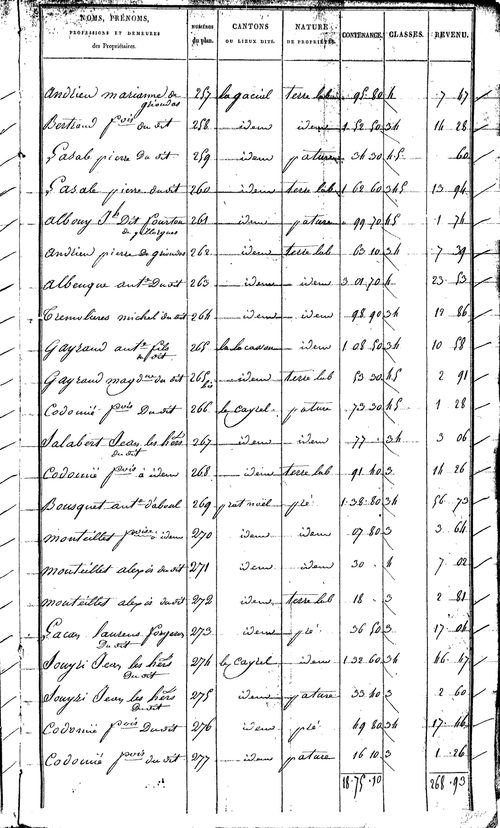 NOMS, PRÉNOMS, PROFESSIONS ET DEMEURES des Propriétaires. NUMÉROS du plan. CANTONS OU LIEUX DITS. NATURE DE PROPRIÉTÉS. CONTENANCE. CLASSES. REVENU.
andrieu marianne de grioudas 257 la gaciel terre lab 95 80 4 7 67
Bertrand fçois du dit 258 idem idem 1 52 50 34 14 28
pierre du dit 259 idem pature 34 30 45 60
pierre du dit 260 idem terre lab 1 62 60 345 13 94
albouy Jh dit 261 idem pature 99 70 45 1 74
andrieu pierre de grioudas 262 idem terre lab 63 10 34 7 39
albenque ant.e du dit 263 idem idem 3 01 70 4 23 53
michel du dit 264 idem idem 98 90 34 12 86
Gayraud ant.e fils du dit 265 idem 1 08 50 34 10 58
Gayraud magd.ne du dit 265 bis idem terre lab 53 30 45 2 91
Codomié fçois du dit 266 le Cayrel pature 73 30 45 1 28
Salabert Jean les hers du dit 267 idem idem 77 34 3 06
Codomié fçois à idem 268 idem terre lab 91 40 3 14 26
Bousquet ant.e d'aboul 269 prat noël pré 1 38 80 34 56 73
monteilles à idem 270 idem idem 07 80 3 3 64
monteilles alexis du dit 271 idem idem 30 4 7 02
monteilles alexis du dit 272 idem terre lab 18 3 2 81
laurens du dit 273 idem pré 36 50 3 17 04
Souyri Jean les hers du dit 274 le Cayrel idem 1 32 60 34 46 67
Souyri Jean les hers du dit 275 idem pature 33 40 3 2 60
Codomié fçois du dit 276 idem pré 49 80 34 17 46
Codomié fçois du dit 277 idem pature 16 10 3 1 26
18 75 10 268 93